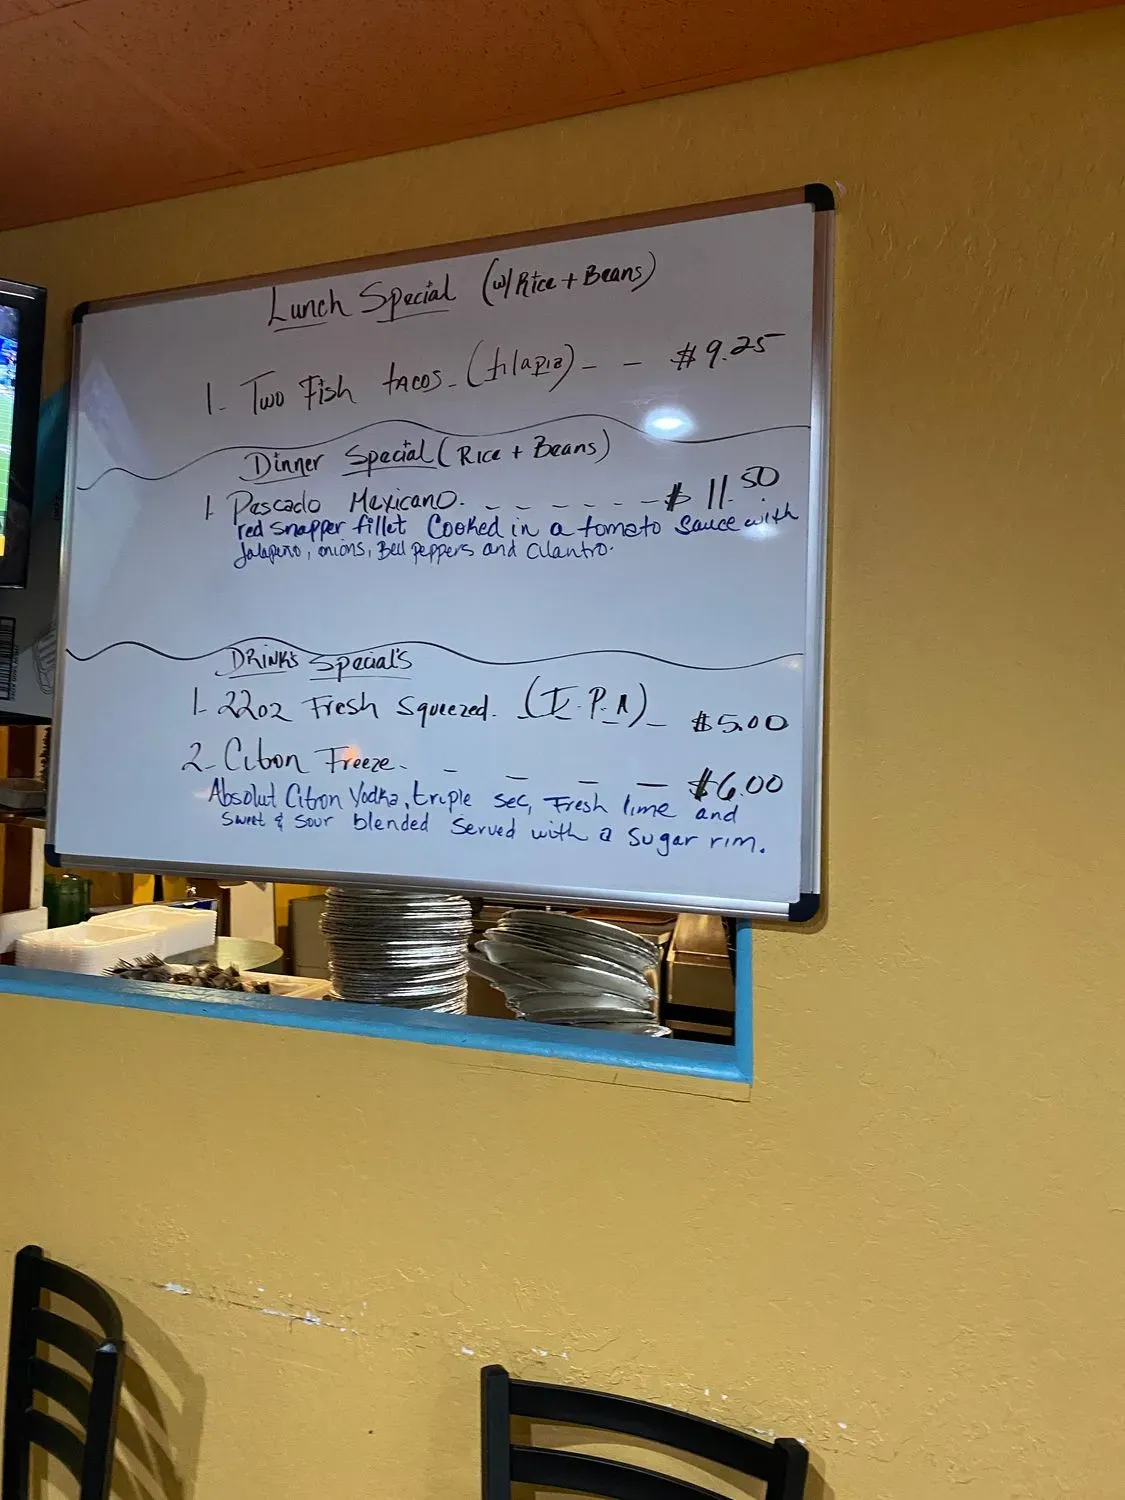 Lunch Special (w/Rice + Beans)
1- Two Fish tacos - (tilapia) - - $9.25
Dinner Special (Rice + Beans)
1. Pescado Mexicano. - - - - - - $11.50
red snapper fillet Cooked in a tomato sauce with
Jalapeno, onions, Bell peppers and Cilantro.
DRINK'S Special's
1- 22oz Fresh Squeezed. (I.P.A) - $5.00
2- Citron Freeze. - - - - $6.00
Absolut Citron Vodka, triple sec, Fresh lime and
Sweet & Sour blended Served with a Sugar rim.